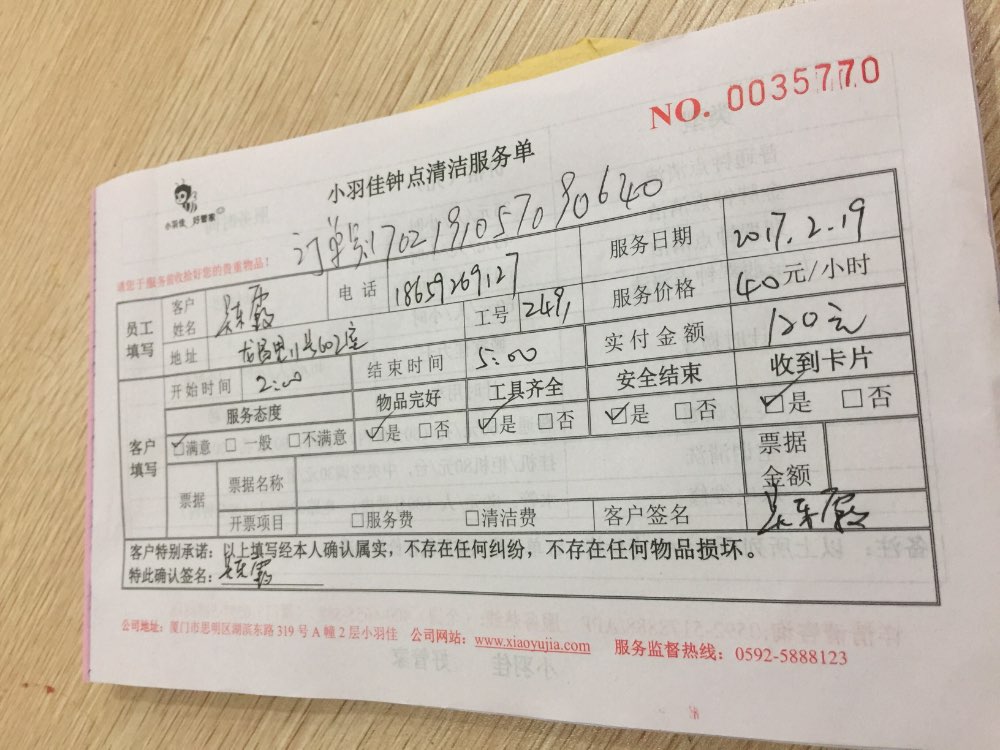 NO. 0035770
小羽佳 好管家
小羽佳钟点清洁服务单
订单号170219105709 0640
请您于服务前收拾好您的贵重物品！
员工填写 客户姓名 电话 18659269127 服务日期 2017.2.19
地址 602室 工号 249 服务价格 40元/小时
开始时间 2:00 结束时间 5:00 实付金额 120元
客户填写 服务态度 物品完好 工具齐全 安全结束 收到卡片
☑满意 □一般 □不满意 ☑是 □否 ☑是 □否 ☑是 □否 ☑是 □否
票据 票据名称 票据金额
开票项目 □服务费 □清洁费 客户签名
客户特别承诺：以上填写经本人确认属实，不存在任何纠纷，不存在任何物品损坏。
特此确认签名：
公司地址：厦门市思明区湖滨东路319号A幢2层小羽佳 公司网站：www.xiaoyujia.com 服务监督热线：0592-5888123